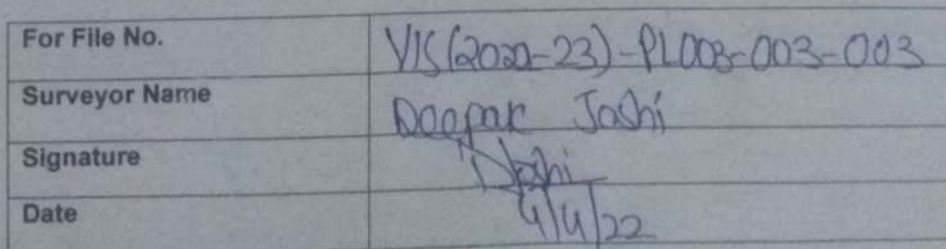 For File No. VIS(2022-23)-PL003-003-003
Surveyor Name Deepak Joshi
Signature DJoshi
Date 4/4/22